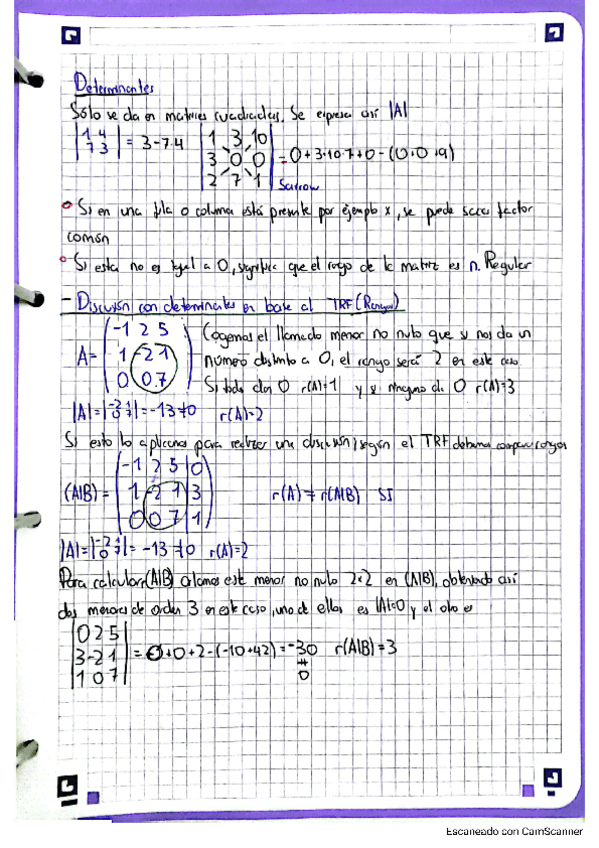 Determinantes
Sólo se da en matrices cuadradas. Se expresa así |A|
|1 4| = 3-7·4 |1 3 10|
|7 3| |3 0 0| = 0+3·10·7+0-(0+0+9)
|2 7 1| Sarrow
Si en una fila o columna está presente por ejemplo x, se puede sacar factor
común
Si esta no es igual a 0, significa que el rango de la matriz es n. Regular
- Discusión con determinantes en base al TRF (Rangos)
A = (-1 2 5
1 -2 1
0 0 7) Cogemos el llamado menor no nulo que si nos da un
número distinto a 0, el rango será 2 en este caso.
Si todo dan 0 r(A)=1 y si ninguno da 0 r(A)=3
|A|=|-2 1
0 7|=-13≠0 r(A)=2
Si esto lo aplicamos para realizar una discusión, según el TRF debemos comparar rangos
(A|B) = (-1 2 5 | 0
1 -2 1 | 3
0 0 7 | 1) r(A) = r(A|B) SI
|A|=|-2 1
0 7|= -13≠0 r(A)=2
Para calcular r(A|B) orlamos este menor no nulo 2x2 en (A|B), obteniendo así
dos menores de orden 3 en este caso, uno de ellos es |A|=0 y el otro es
|0 2 5|
|3 -2 1| = 0+0+2-(-10+42) = -30 r(A|B)=3
|1 0 7| ≠
0
Escaneado con CamScanner